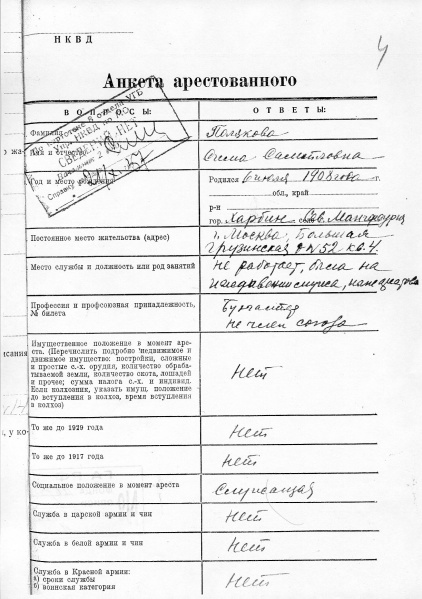 НКВД
4
Анкета арестованного
ВОПРОСЫ: ОТВЕТЫ:
По картотеке 8 отдела УГБ
Упр. НКВД
СВЕДЕНИЙ НЕТ
Справку
Фамилия
Имя и отчество Самойловна
Год и место рождения Родился 6 июля 1908 года г.
обл., край
р-н
гор. Харбин, село Сев. Манчжурия
Постоянное место жительства (адрес) г. Москва, Большая
Грузинская д №52 кв. 4
Место службы и должность или род занятий не работает, была на
Профессия и профсоюзная принадлежность, Бухгалтер
№ билета не член союза
Имущественное положение в момент аре-
ста. (Перечислить подробно недвижимое и
движимое имущество: постройки, сложные
и простые с.-х. орудия, количество обраба-
тываемой земли, количество скота, лошадей
и прочее; сумма налога с.-х. и индивид.
Если колхозник, указать имущ. положение
до вступления в колхоз, время вступления
в колхоз) Нет
То же до 1929 года Нет
То же до 1917 года Нет
Социальное положение в момент ареста Служащая
Служба в царской армии и чин Нет
Служба в белой армии и чин Нет
Служба в Красной армии:
а) сроки службы
б) воинская категория Нет